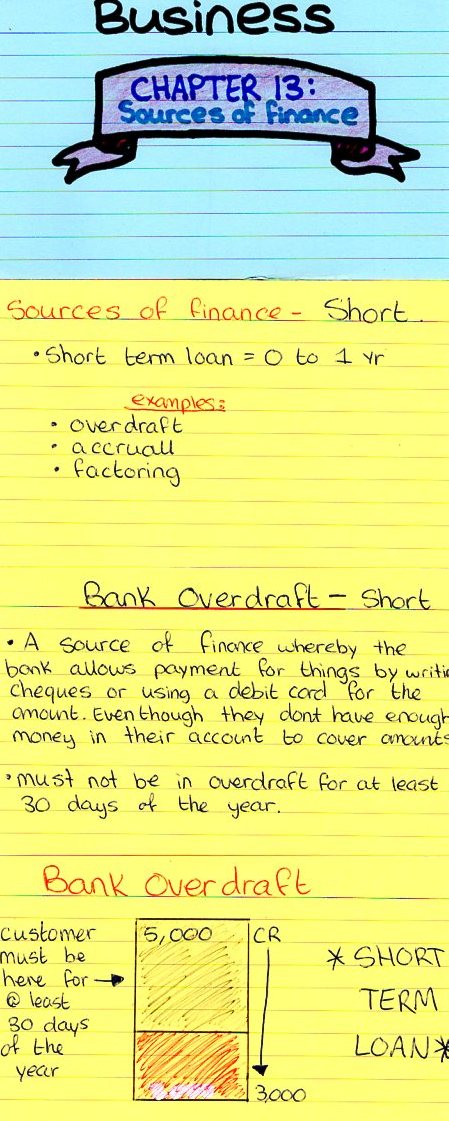 Business
CHAPTER 13:
Sources of finance
Sources of finance - Short.
• Short term loan = 0 to 1 yr
examples:
• overdraft
• accruall
• factoring
Bank Overdraft - Short
• A source of finance whereby the
bank allows payment for things by writi
cheques or using a debit card for the
amount. Even though they dont have enough
money in their account to cover amounts
• must not be in overdraft for at least
30 days of the year.
Bank Overdraft
customer
must be
here for →
@ least
30 days
of the
year
5,000
CR
3,000
* SHORT
TERM
LOAN *